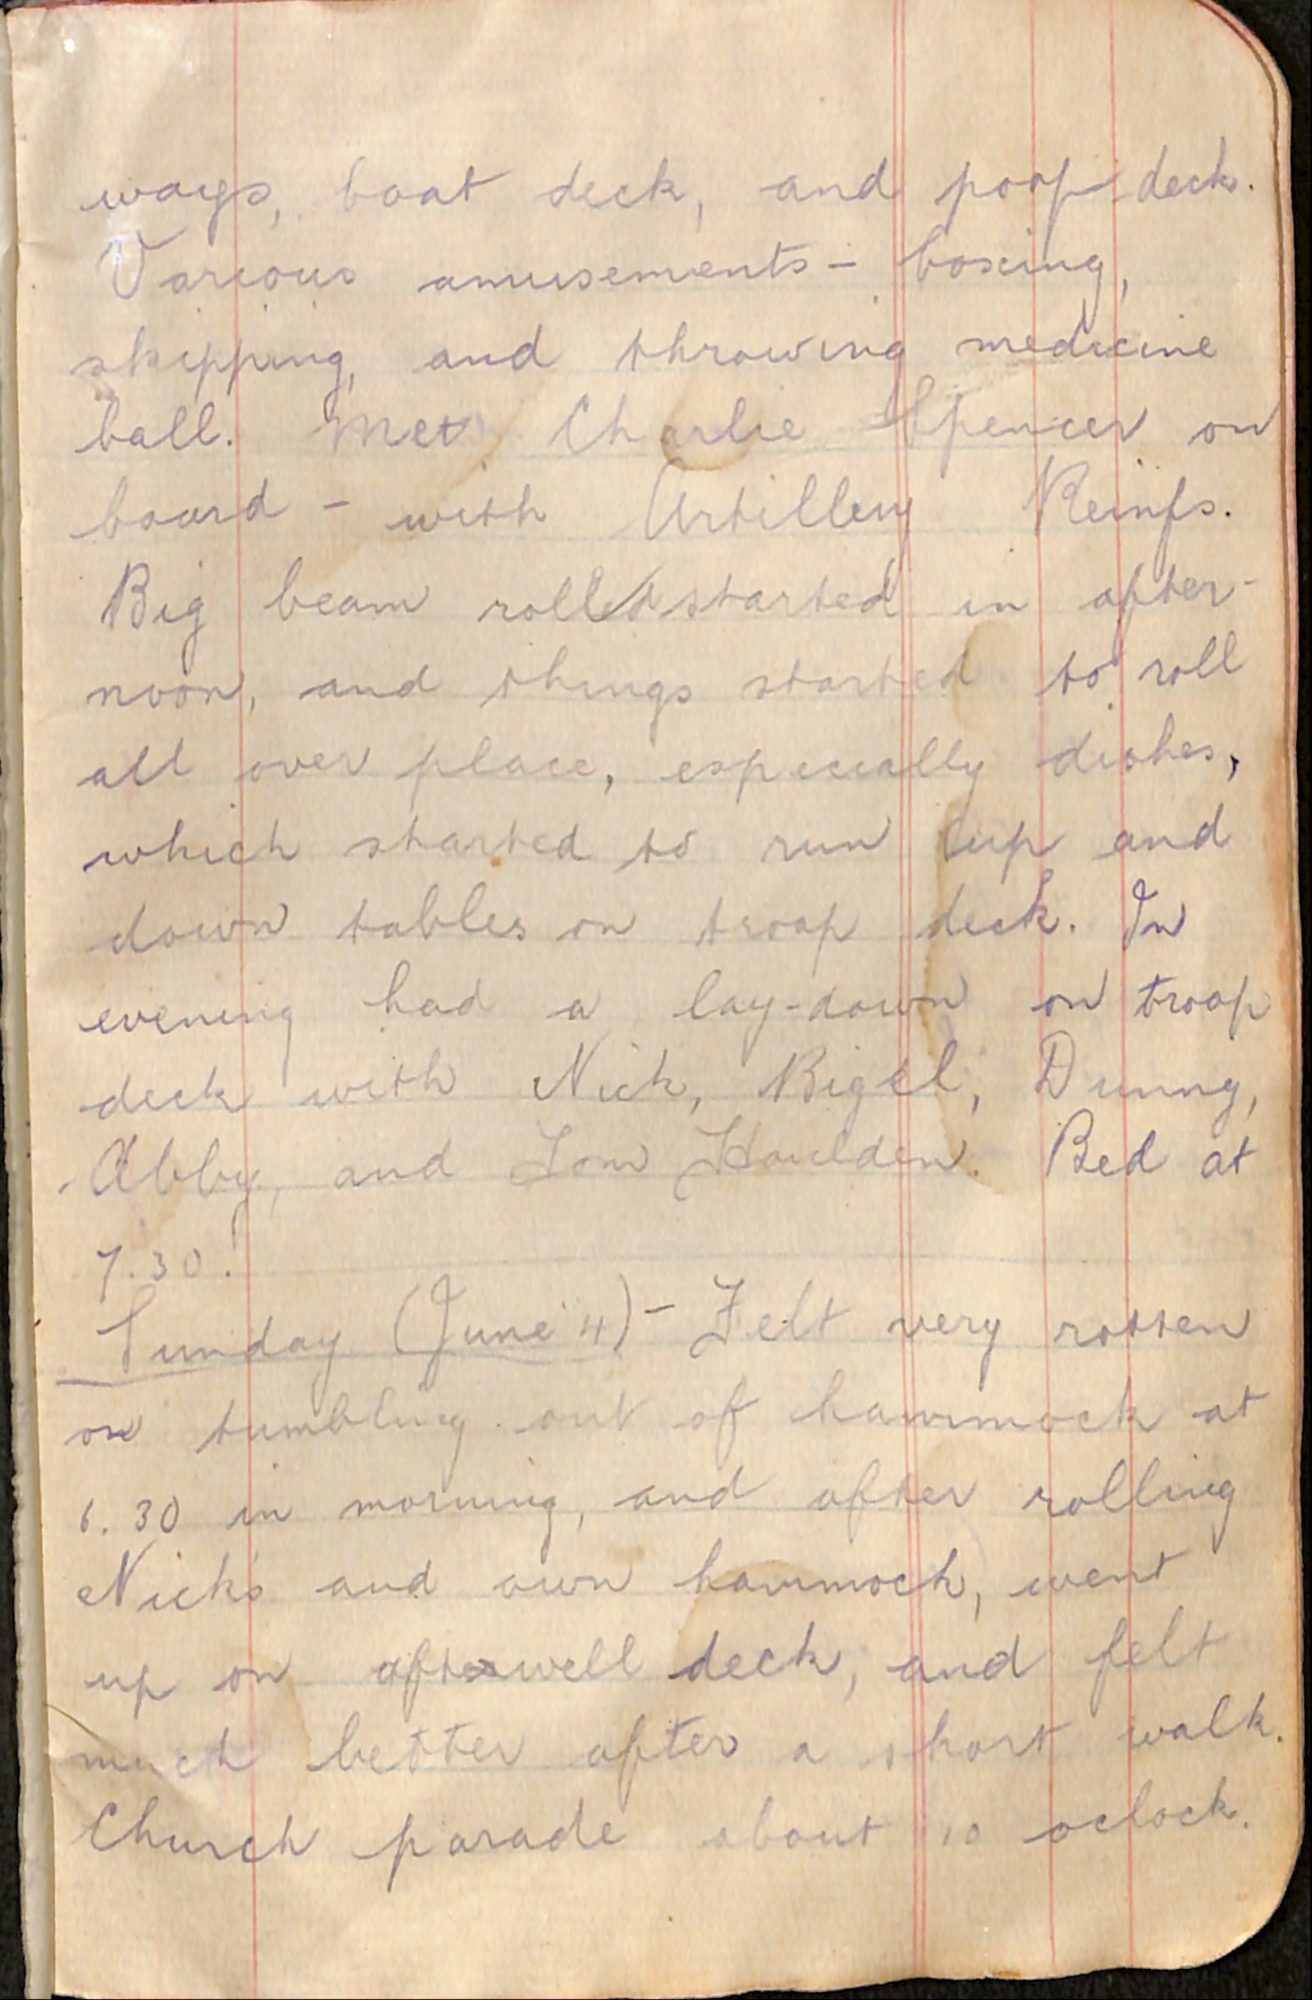 ways, boat deck, and poop deck.
Various amusements - boxing,
skipping, and throwing medicine
ball. Met Charlie Spencer on
board - with Artillery Reinfs.
Big beam roll started in after-
noon, and things started to roll
all over place, especially dishes,
which started to run up and
down tables on troop deck. In
evening had a lay-down on troop
deck with Nick, Bigel, Dunny,
Abby, and Tom Houlden. Bed at
7.30!
Sunday (June 4) - Felt very rotten
on tumbling out of hammock at
6.30 in morning, and after rolling
Nick's and own hammock, went
up on after well deck, and felt
much better after a short walk.
Church parade about 10 oclock.